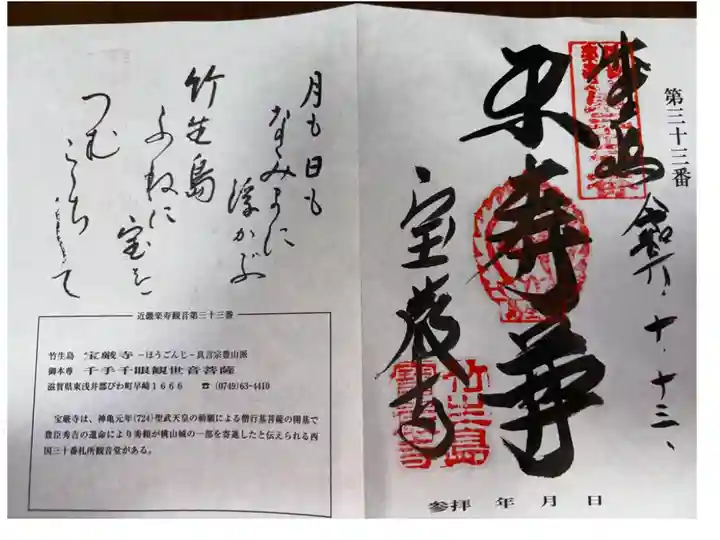 第三十三番
竹生島
令和六・十・十三、
楽寿尊
宝厳寺
竹生島
参拝　年　月　日
月も日も
なみまに
浮かぶ
竹生島
ふねに
宝を
つむ
こゝち
して
近畿楽寿観音第三十三番
竹生島　宝厳寺－ほうごんじ－真言宗豊山派
御本尊　千手千眼観世音菩薩
滋賀県東浅井郡びわ町早崎１６６６　☎(0749)63-4410
宝厳寺は、神亀元年(724)聖武天皇の勅願による僧行基菩薩の開基で
豊臣秀吉の遺命により秀頼が桃山城の一部を寄進したと伝えられる西
国三十番札所観音堂がある。